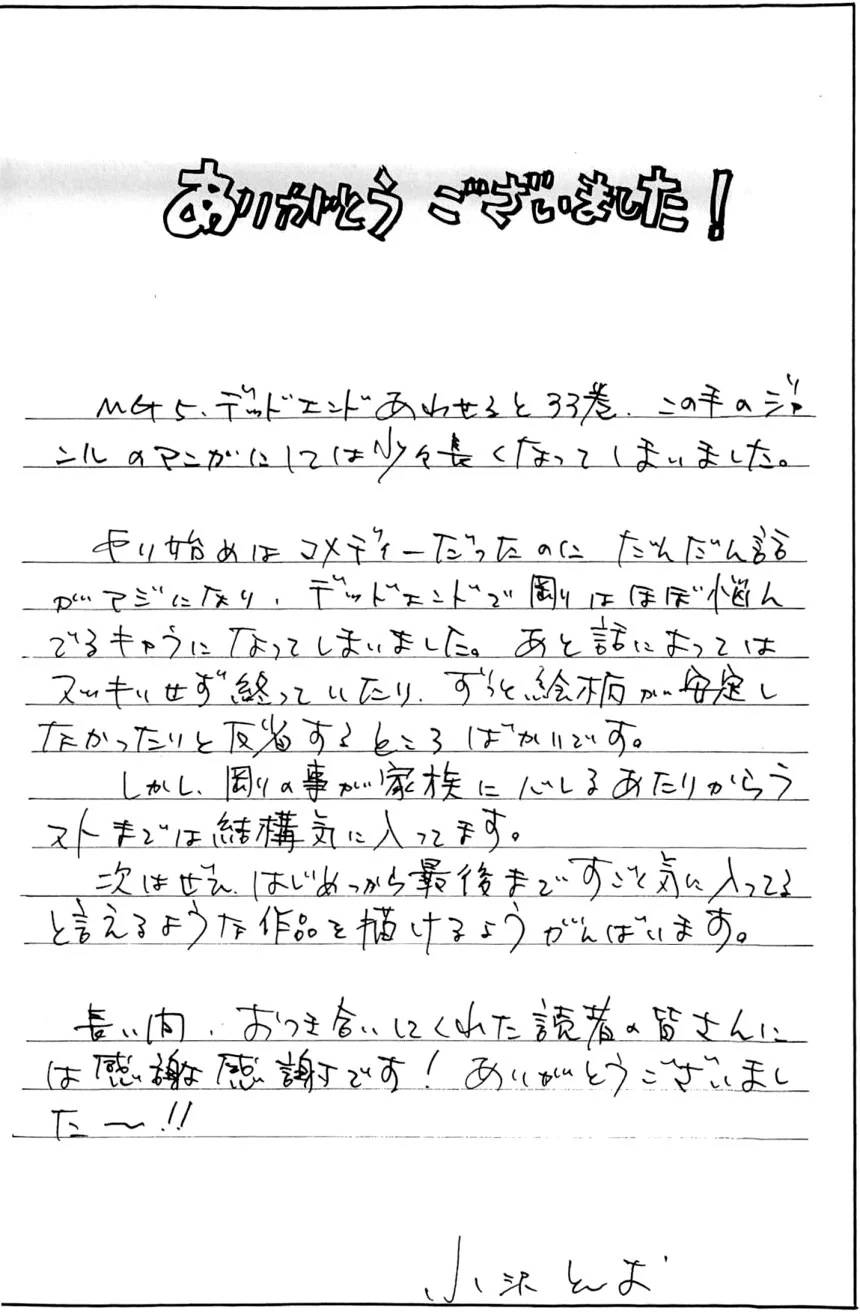 ありがとうございました!
MG5、デッドエンドあわせると33巻、この手のジャ
ンルのマンガにしては少々長くなってしまいました。
やり始めはコメディーだったのに だんだん話
がマジになり、デッドエンドで剛はほぼ悩ん
でるキャラになってしまいました。あと話によっては
スッキリせず終っていたり、ずっと絵柄が安定し
なかったりと反省するところばかりです。
しかし、剛の事が家族にバレるあたりからラ
ストまでは結構気に入ってます。
次はぜひ、はじめっから最後まですごく気に入ってる
と言えるような作品を描けるようがんばります。
長い間、おつき合いしてくれた読者の皆さんに
は感謝感謝です! ありがとうございまし
た〜!!
小沢としお